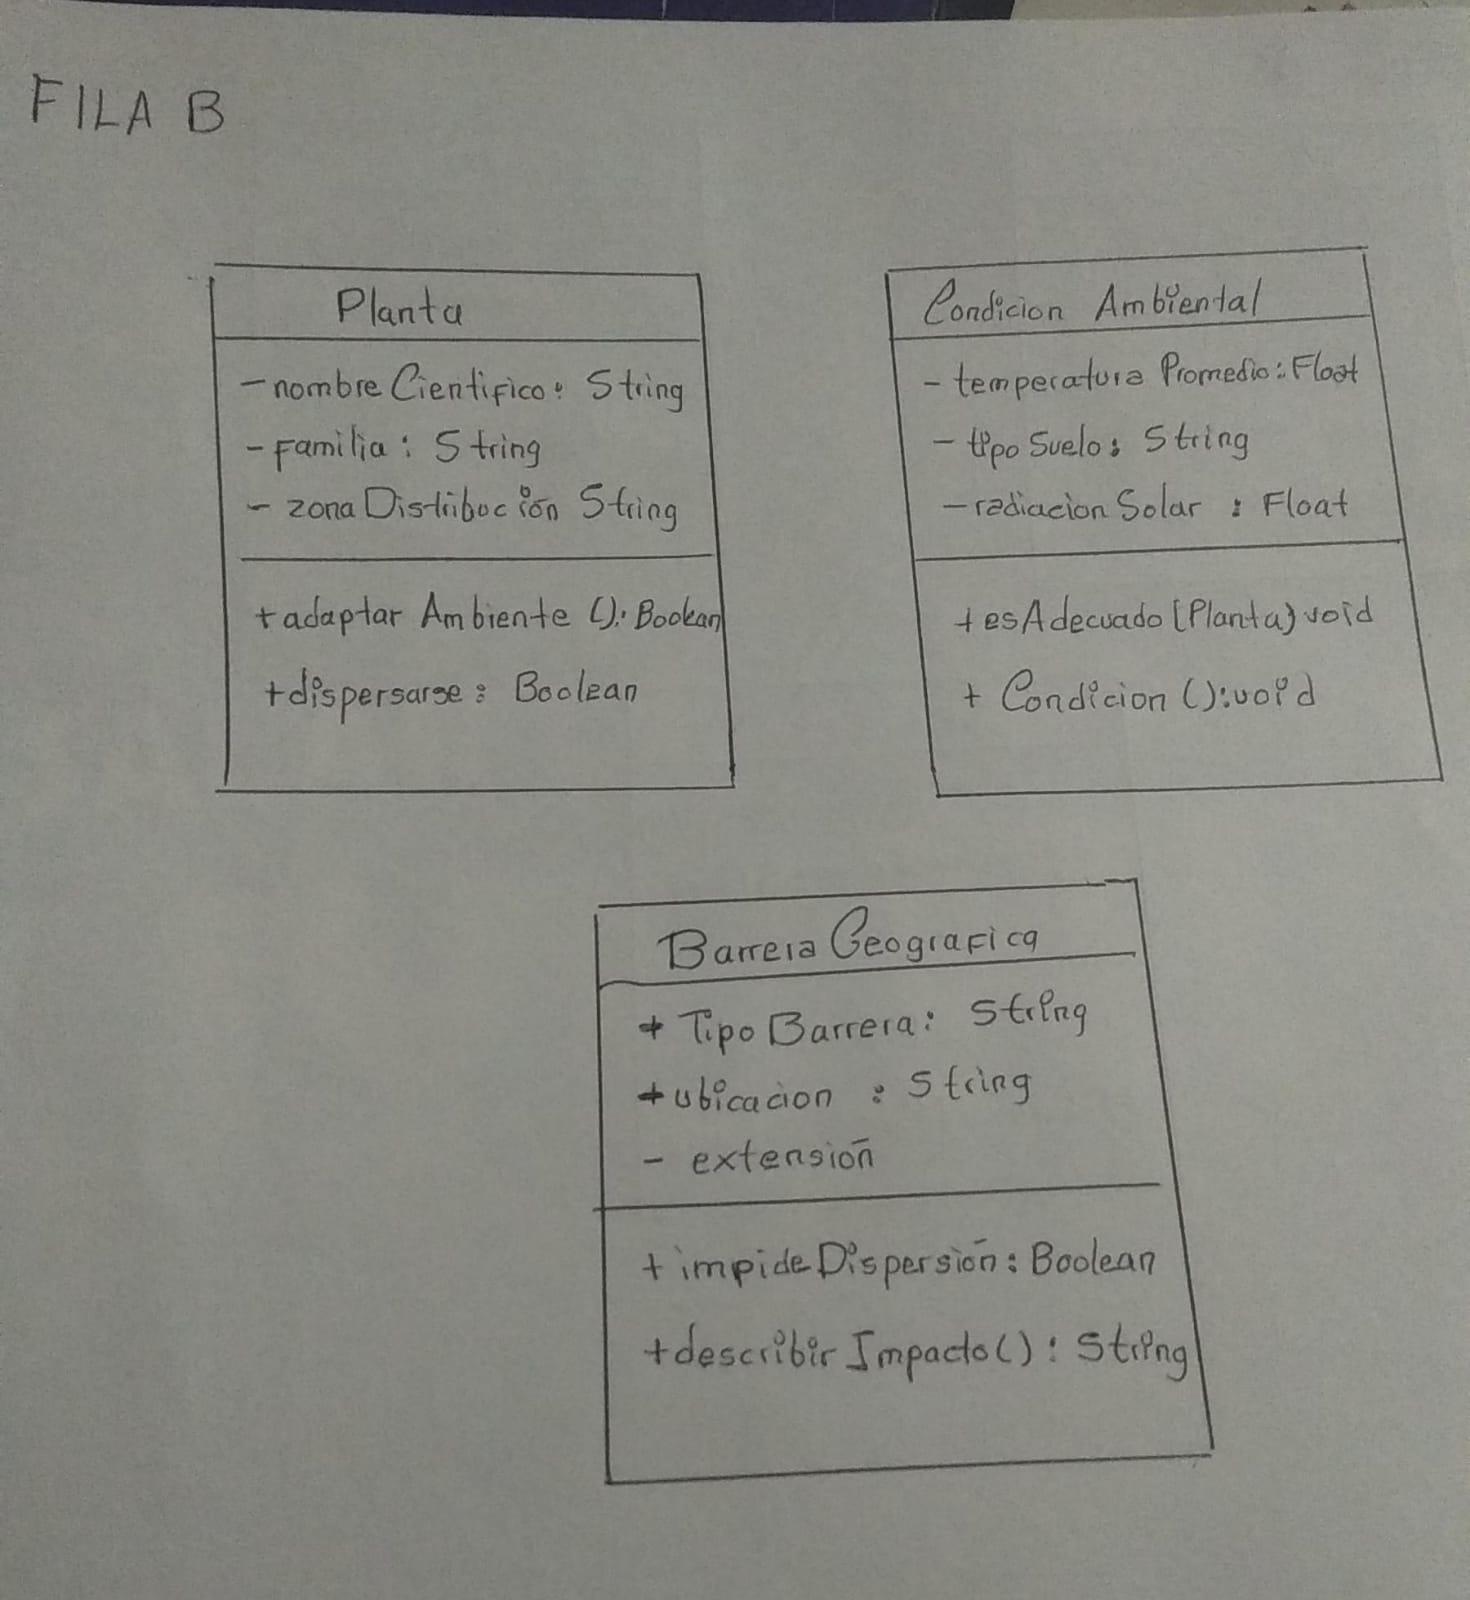 FILA B
Planta
- nombreCientifico: String
- Familia: String
- zonaDistribución String
+ adaptar Ambiente (): Boolean
+ dispersarse: Boolean
Condicion Ambiental
- temperatura Promedio: Float
- tipo Suelo: String
- radiacion Solar : Float
+ esAdecuado (Planta) void
+ Condicion (): void
Barrera Geografica
+ Tipo Barrera: String
+ ubicacion : String
- extensión
+ impideDispersión: Boolean
+ describir Impacto(): String